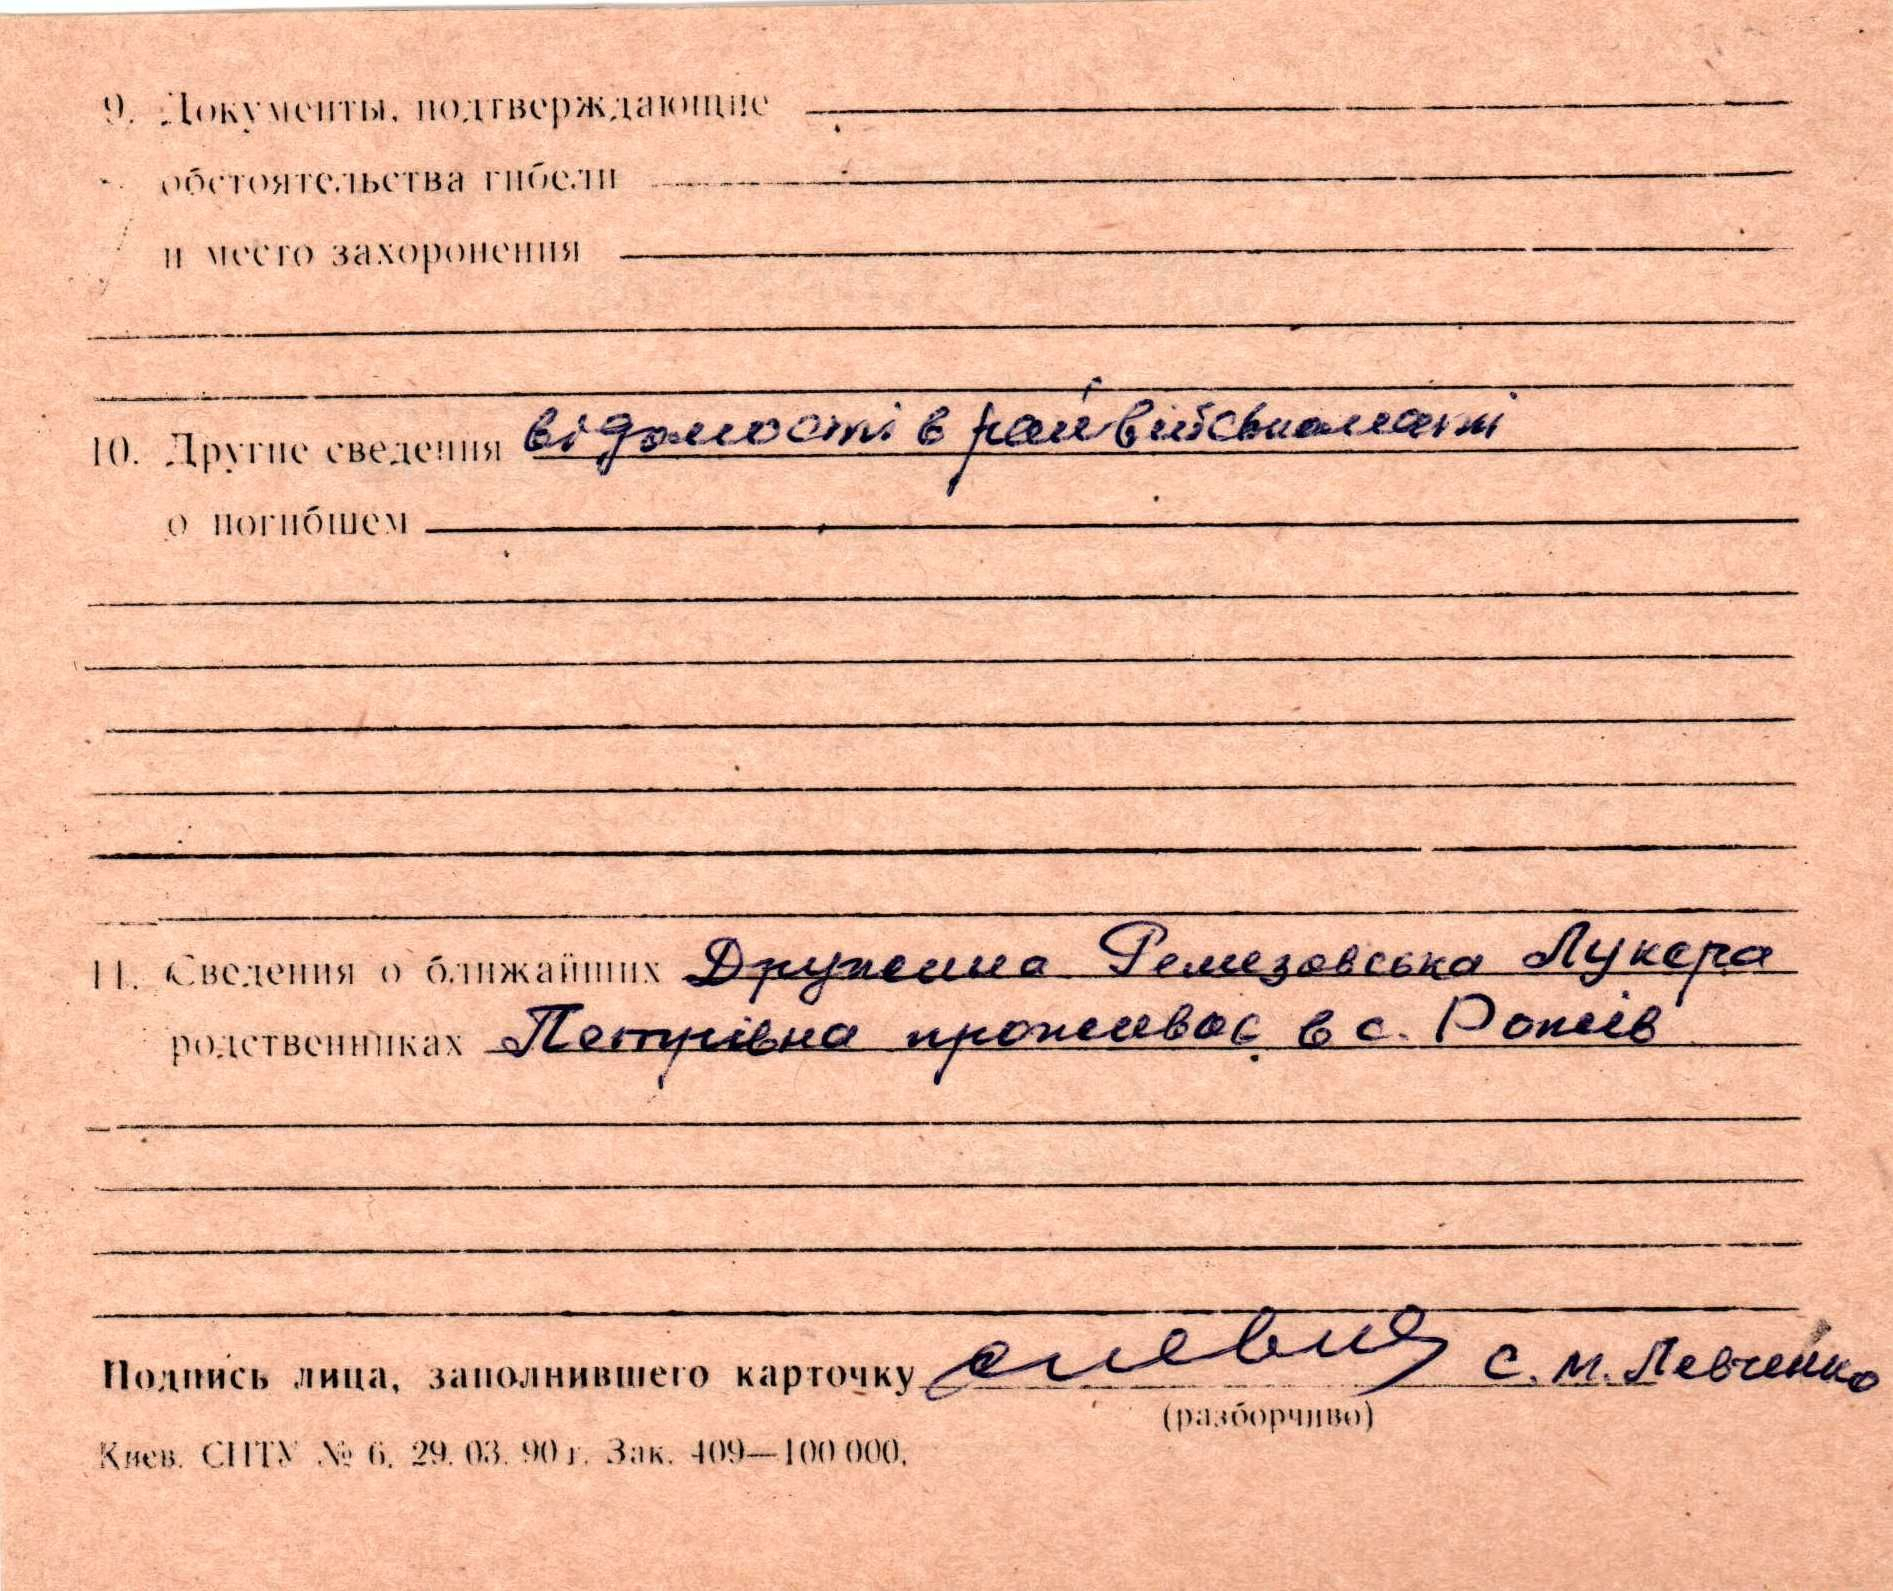 9. Документы, подтверждающие
обстоятельства гибели
и место захоронения
10. Другие сведения відомості в райвійськоматі
о погибшем
11. Сведения о ближайших Дружина Ремезовська Лукера
родственниках Петрівна проживає в с. Рожів
Подпись лица, заполнившего карточку С. М. Левченко
(разборчиво)
Киев. СПТУ № 6. 29. 03. 90 г. Зак. 409—100 000.